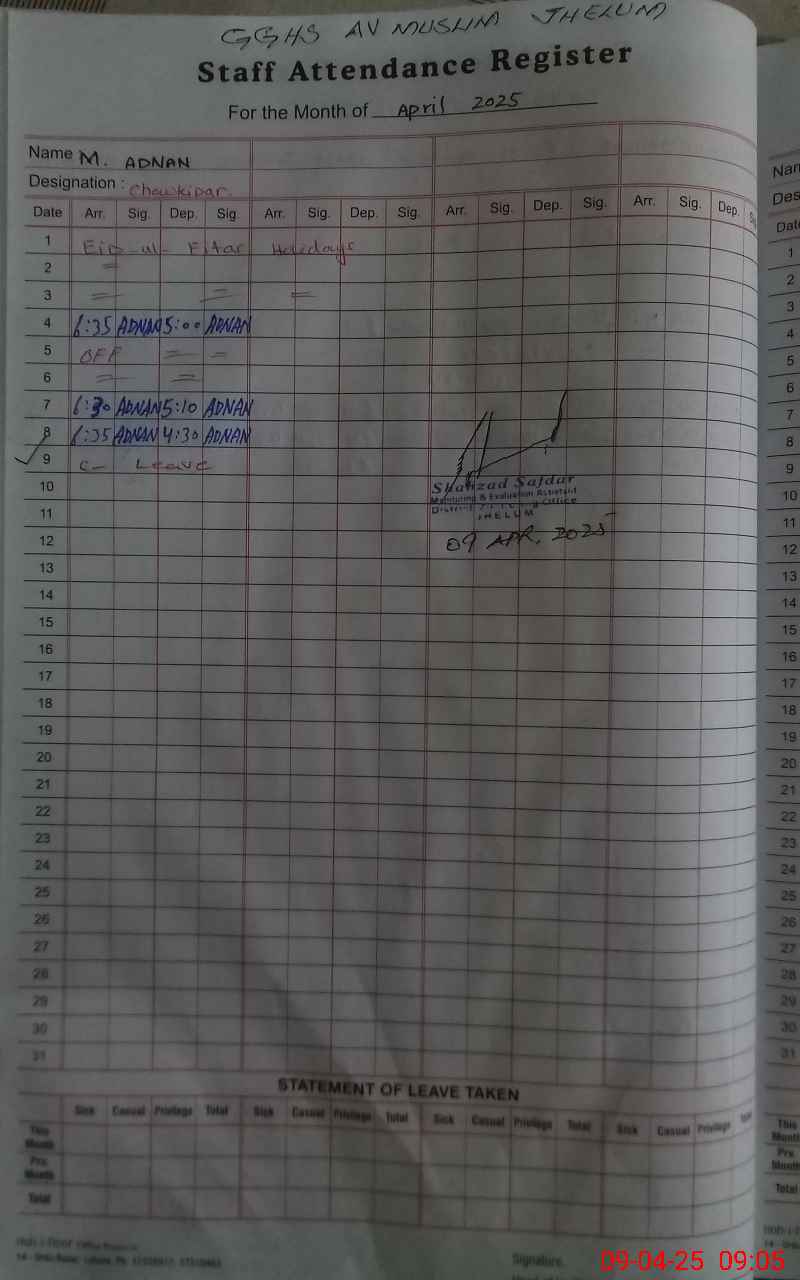 GGHS AV MUSLIM JHELUM
Staff Attendance Register
For the Month of April 2025
Name M. ADNAN
Designation : Chowkidar.
Date Arr. Sig. Dep. Sig. Arr. Sig. Dep. Sig. Arr. Sig. Dep. Sig. Arr. Sig. Dep.
1 Eid-ul-Fitar Holidays
2 =
3 = = =
4 6:35 ADNAN 5:00 ADNAN
5 OFF = =
6 = =
7 6:30 ADNAN 5:10 ADNAN
8 6:35 ADNAN 4:30 ADNAN
9 C- Leave
10
11
12
13
14
15
16
17
18
19
20
21
22
23
24
25
26
27
28
29
30
31
Shahzad Safdar
Monitoring & Evaluation Assistant
Office
JHELUM
09 APR. 2025
STATEMENT OF LEAVE TAKEN
Sick Casual Privilege Total Sick Casual Privilege Total Sick Casual Privilege Total Sick Casual Privilege
This Month
Prv. Month
Total
Signature.
Nam
Des
Date
1
2
3
4
5
6
7
8
9
10
11
12
13
14
15
16
17
18
19
20
21
22
23
24
25
26
27
28
29
30
31
This
Month
Prv.
Month
Total
09-04-25 09:05